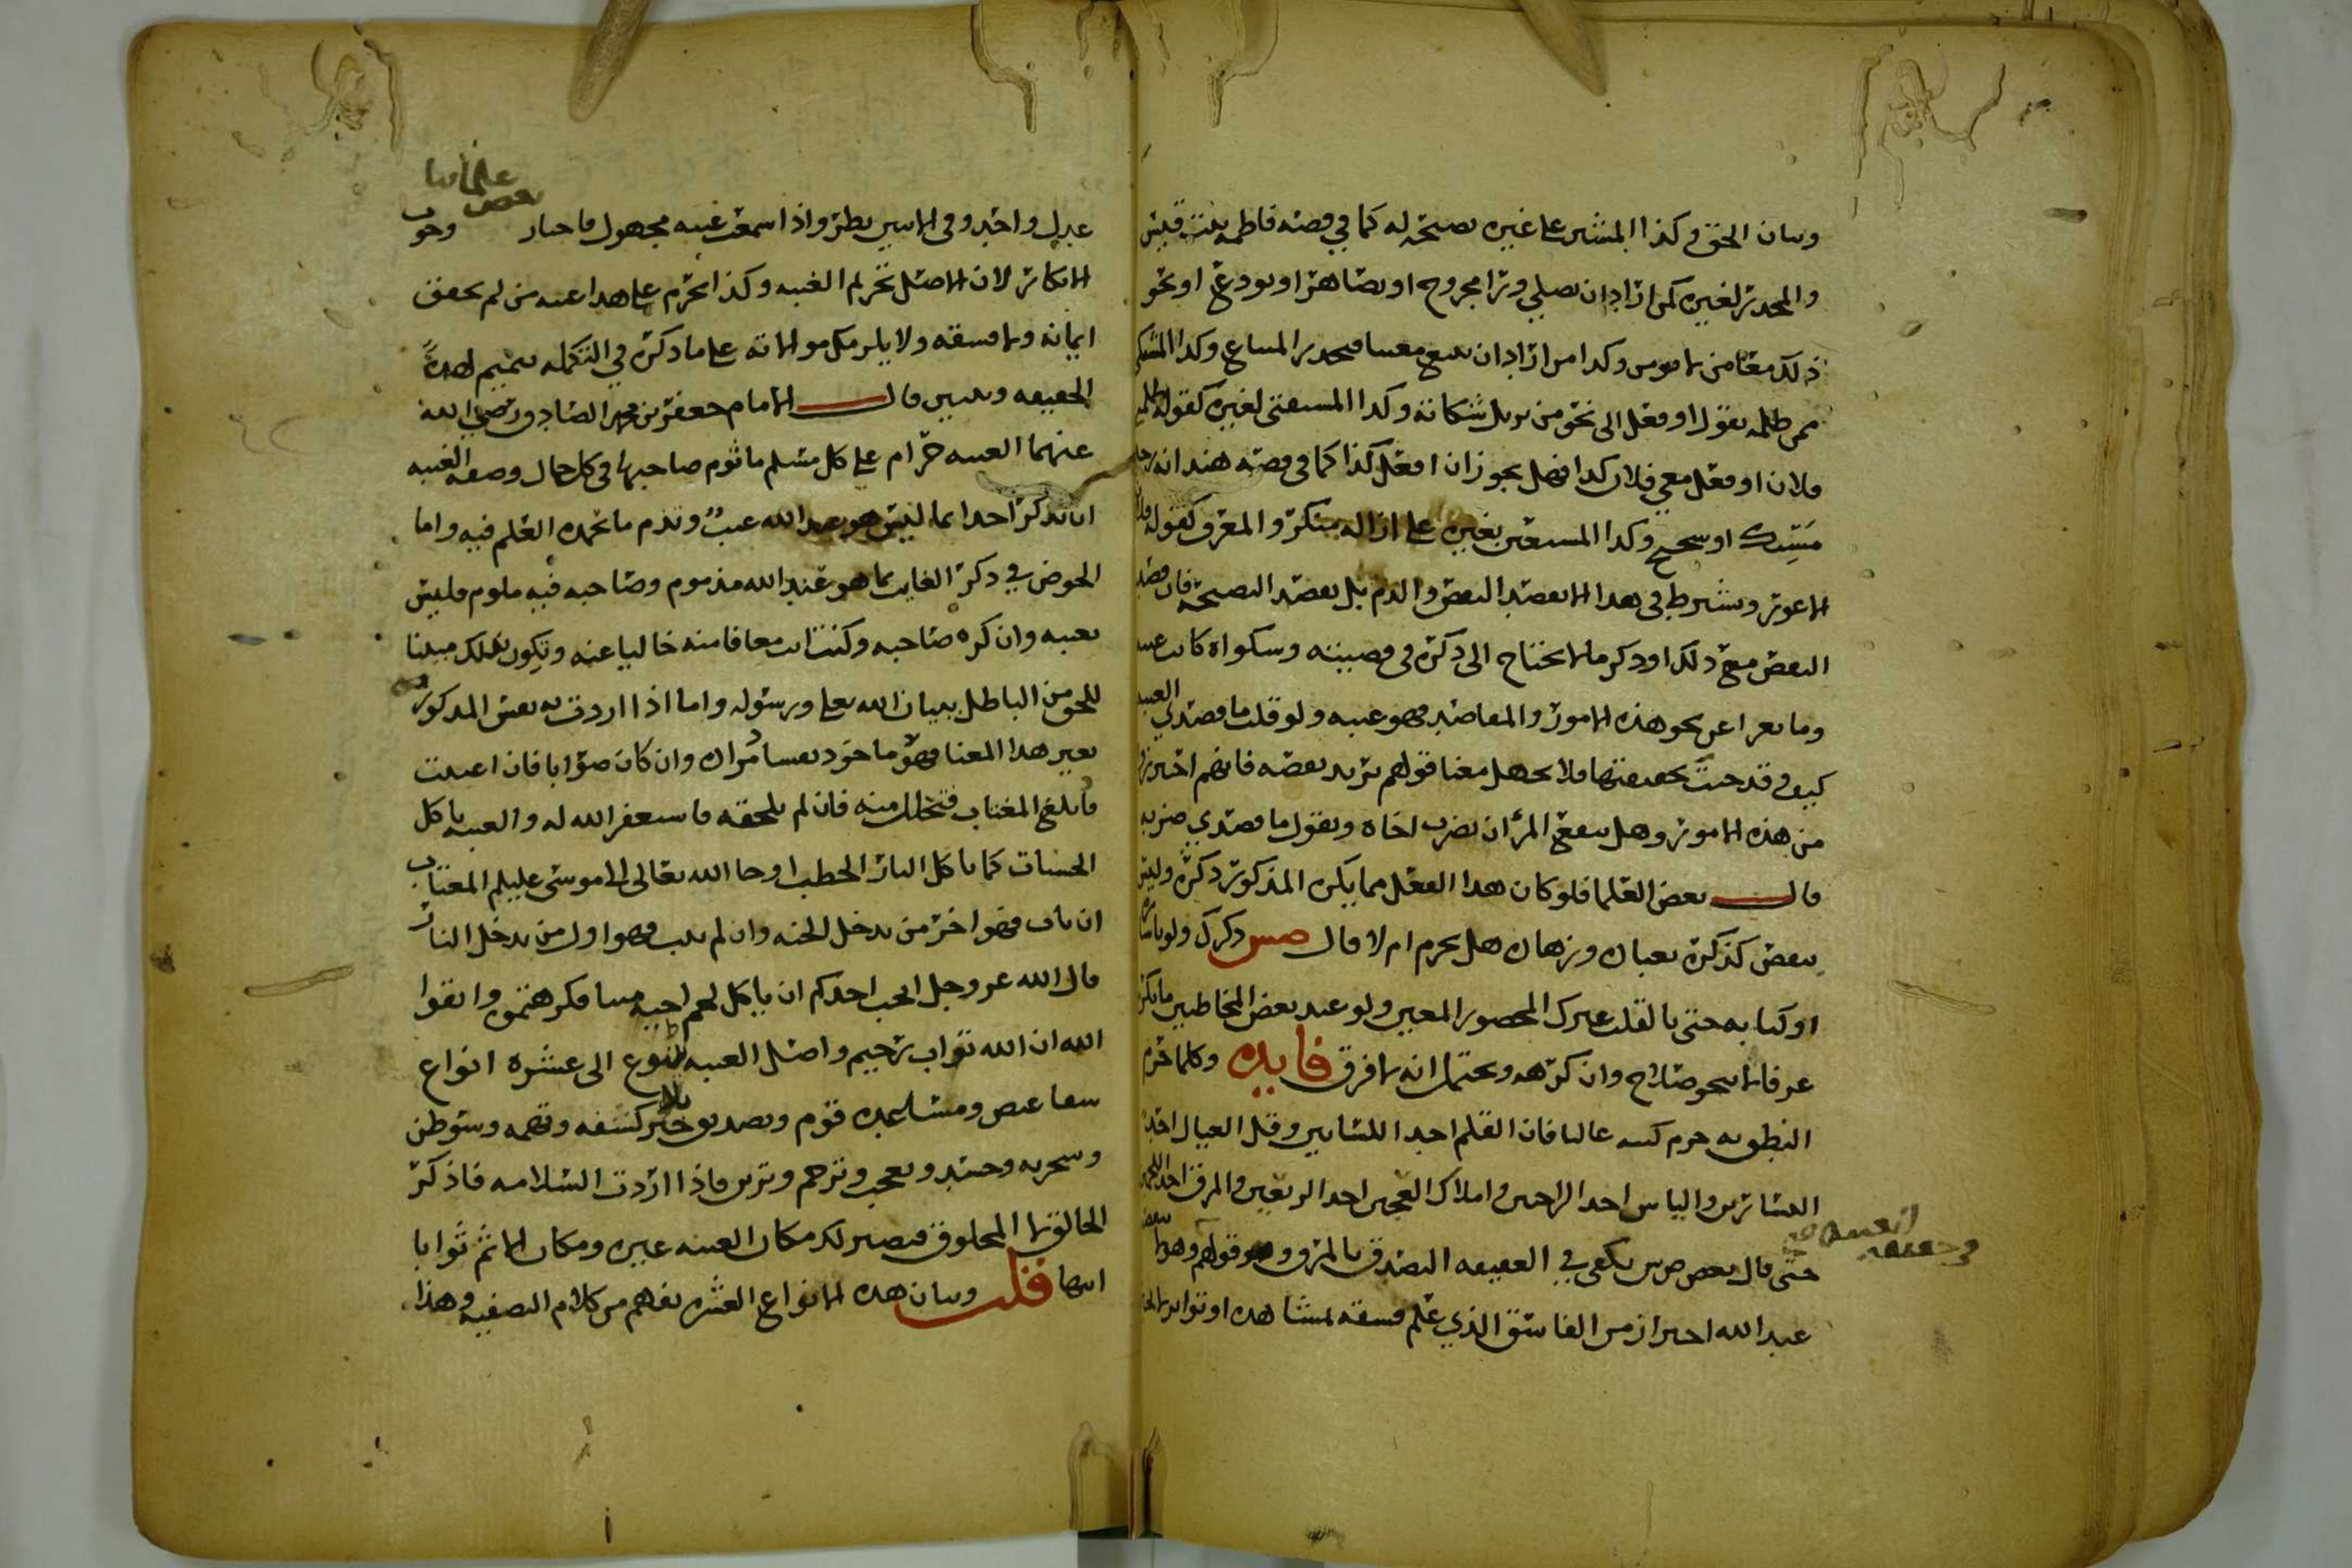 وبيان الحق وكذا المشير على غيره نصيحة له كما في قصة فاطمه بنت قيس
والمحذر لغيره كمن اراد ان يصلي ورا مجروح او يصاهر او يودع او نحو
ذلك معا من لا يومن وكذا من اراد ان يبيع معيبا فيحذر المبتاع وكذا المشتكي
ممن ظلمه بقول او فعل الى نحو من يزيل شكاته وكذا المستفتي لغيره كقوله ظلمني
فلان او فعل معي فلان كذا فهل يجوز ان افعل كذا كما في قصة هند انه رجل
مسيك او شحيح وكذا المستعين بغيره على ازالة منكر والمعرف كقوله فلان
الاعور ويشترط في هذا الا يقصد البعض والذم بل يقصد النصيحة فان قصد
البعض مع ذلك او ذكر ما لا يحتاج الى ذكره في قصيته وشكواه كانت غيبه
وما تعرا عن نحو هذه الامور والمقاصد فهو غيبه ولو قلت ما قصدي الغيبه
كيف وقد جيت بحقيقتها فلا تجهل معنا قولهم يريد بعضه فانهم احترزوا
من هذه الامور وهل ينفع المرء ان يضرب اخاه ويقول ما قصدي ضربه
قال بعض العلما فلو كان هذا الفعل مما يكره المذكور ذكره وليس
بنقص كذكره بعبادة وزهادة هل يحرم ام لا قال ص س ذكرك ولو باشاره
او كنايه حتى بالقلب غيرك المحصور المعين ولو عند بعض المخاطبين ما يكره
عرفا لا بنحو صلاح وان كرهه ويحتمل انه لا فرق فايده وكلما حرم
النطق به حرم كتبه غالبا فان القلم احد اللسانين وقل العيال احد
اليسارين والياس احد الراحتين واملاك العجين احد الريعين والمرق احد اللحمين
حتى قال بعض ص س يكفي في العقيقه التصدق بالمرق وهو قولهم وهو بعض
عبد الله احتراز من الفاسق الذي علم فسقه بمشاهده او تواتر
الغيبه
وحقيقه
علمائنا
بعض
عدل واحد وفي الاثنين نظر واذا سمعت غيبه مجهول فاختار وجوب
الانكار لان الاصل تحريم الغيبه وكذا تحرم على هذا غيبه من لم يتحقق
ايمانه ولا فسقه ولا يلزمك موالاته على ما ذكره في التكمله تتميم لهذه
الحقيقه وتبيين قال الامام جعفر بن محمد الصادق رضي الله
عنهما الغيبه حرام على كل مسلم ماثوم صاحبها في كل حال وصفة الغيبه
ان تذكر احدا بما ليس هو عند الله عيب وتذم ما تحمده العلم فيه واما
الخوض في ذكر الغايب بما هو عند الله مذموم وصاحبه فيه ملوم فليس
بغيبه وان كره صاحبه وكنت انت معافا منه خاليا عنه وتكون بذلك مبينا
للحق من الباطل ببيان الله تعلى ورسوله واما اذا اردت به نقص المذكور
بغير هذا المعنا فهو ماخوذ بفساد مراده وان كان صوابا فان اغتبت
فابلغ المغتاب فتحلل منه فان لم تلحقه فاستغفر الله له والغيبه تاكل
الحسنات كما تاكل النار الحطب اوحا الله تعالى الى موسى عليلم المغتاب
ان تاب فهو اخر من يدخل الجنه وان لم يتب فهو اول من يدخل النار
قال الله عز وجل ايحب احدكم ان ياكل لحم اخيه ميتا فكرهتموه واتقوا
الله ان الله تواب رحيم واصل الغيبه تتنوع الى عشرة انواع
شفا غيض ومساعده قوم وتصديق خبر بلا كشفه وتهمه وسوظن
وسخريه وحسد وتعجب وترحم وتزين فاذا اردت السلامه فاذكر
الخالق لا المخلوق فيصير لك مكان الغيبه عبره ومكان الاثم ثوابا
انتها قلت وبيان هذه الانواع العشره يفهم من كلام التصفيه وهذا